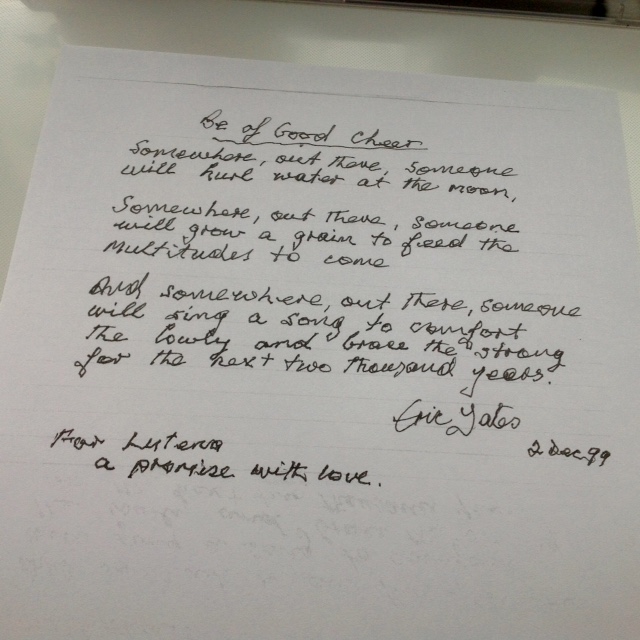 Be of Good Cheer
Somewhere, out there, someone
will hurl water at the moon,
Somewhere, out there, someone
will grow a grain to feed the
multitudes to come
And somewhere, out there, someone
will sing a song to comfort
the lowly and brace the strong
for the next two thousand years.
Eric Yates
2 Dec 99
For Lutena
a promise with love.